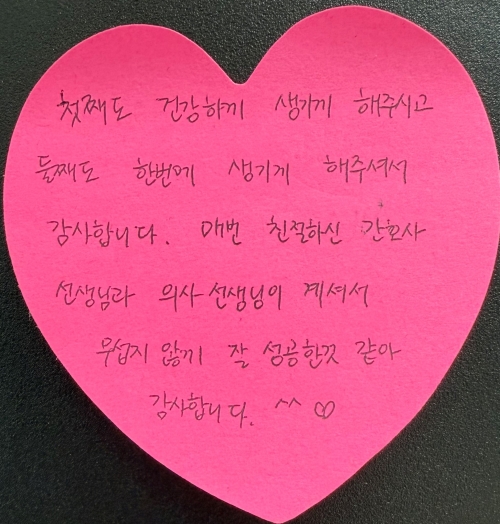 첫째도 건강하게 생기게 해주시고
둘째도 한번에 생기게 해주셔서
감사합니다. 매번 친절하신 간호사
선생님과 의사선생님이 계셔서
무섭지 않게 잘 성공한것 같아
감사합니다. ^^ ♡